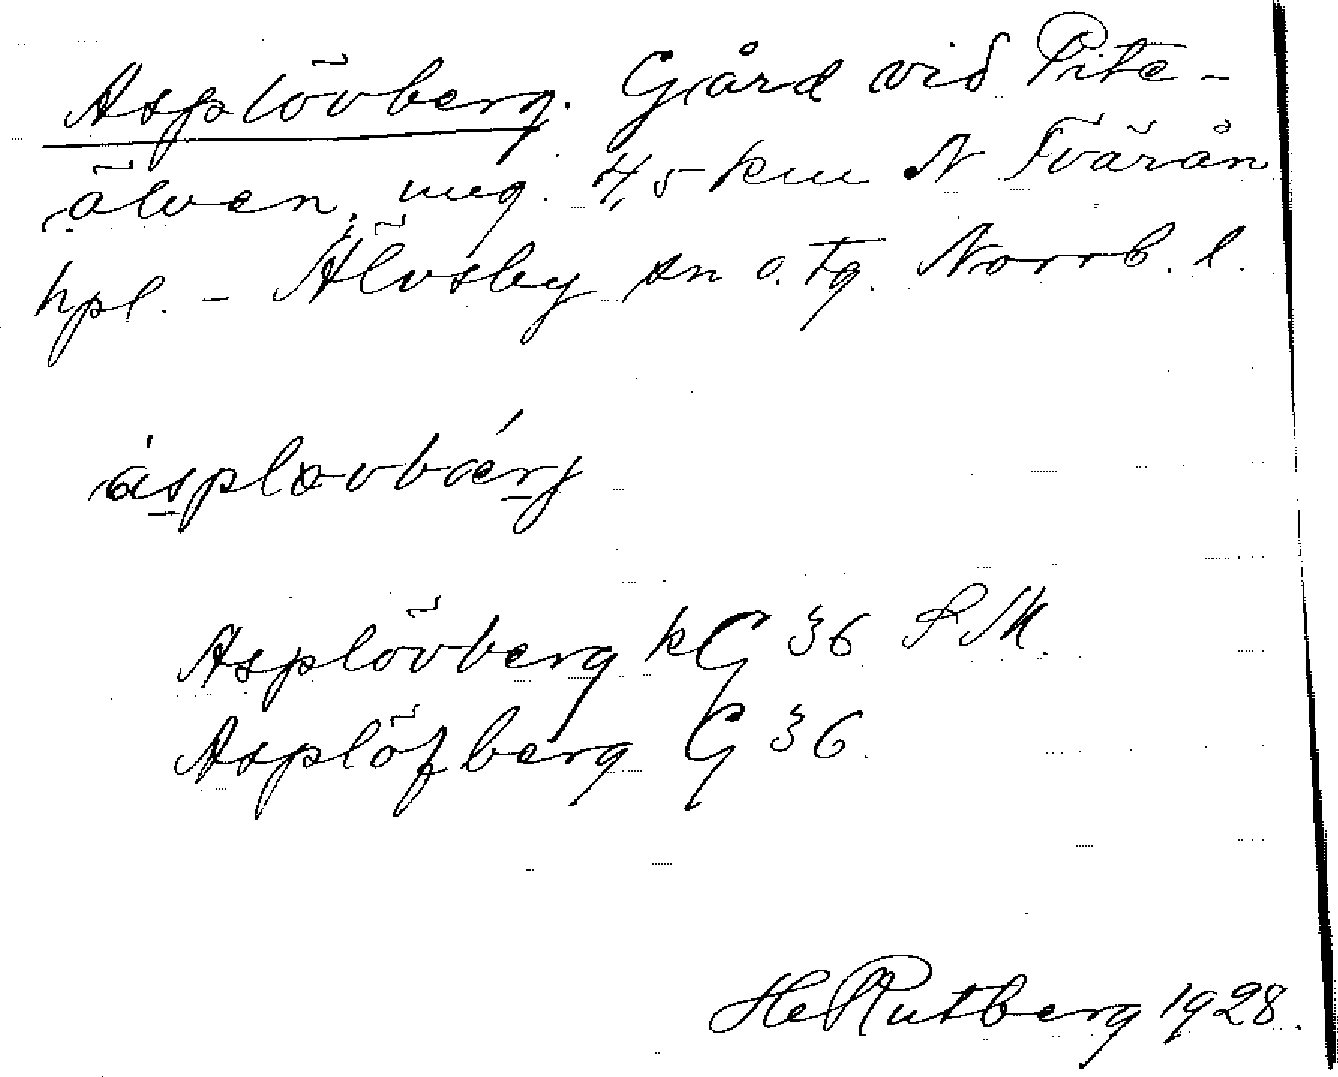 Asplövberg. Gård vid Pite-
älven, ung. 4,5 km N Tvärån
hpl. - Älvsby sn o. tg. Norrb. l.
ásplovbǽrj
Asplövberg kG 36 S.M.
Asplöfberg G 36.
He Rutberg 1928.